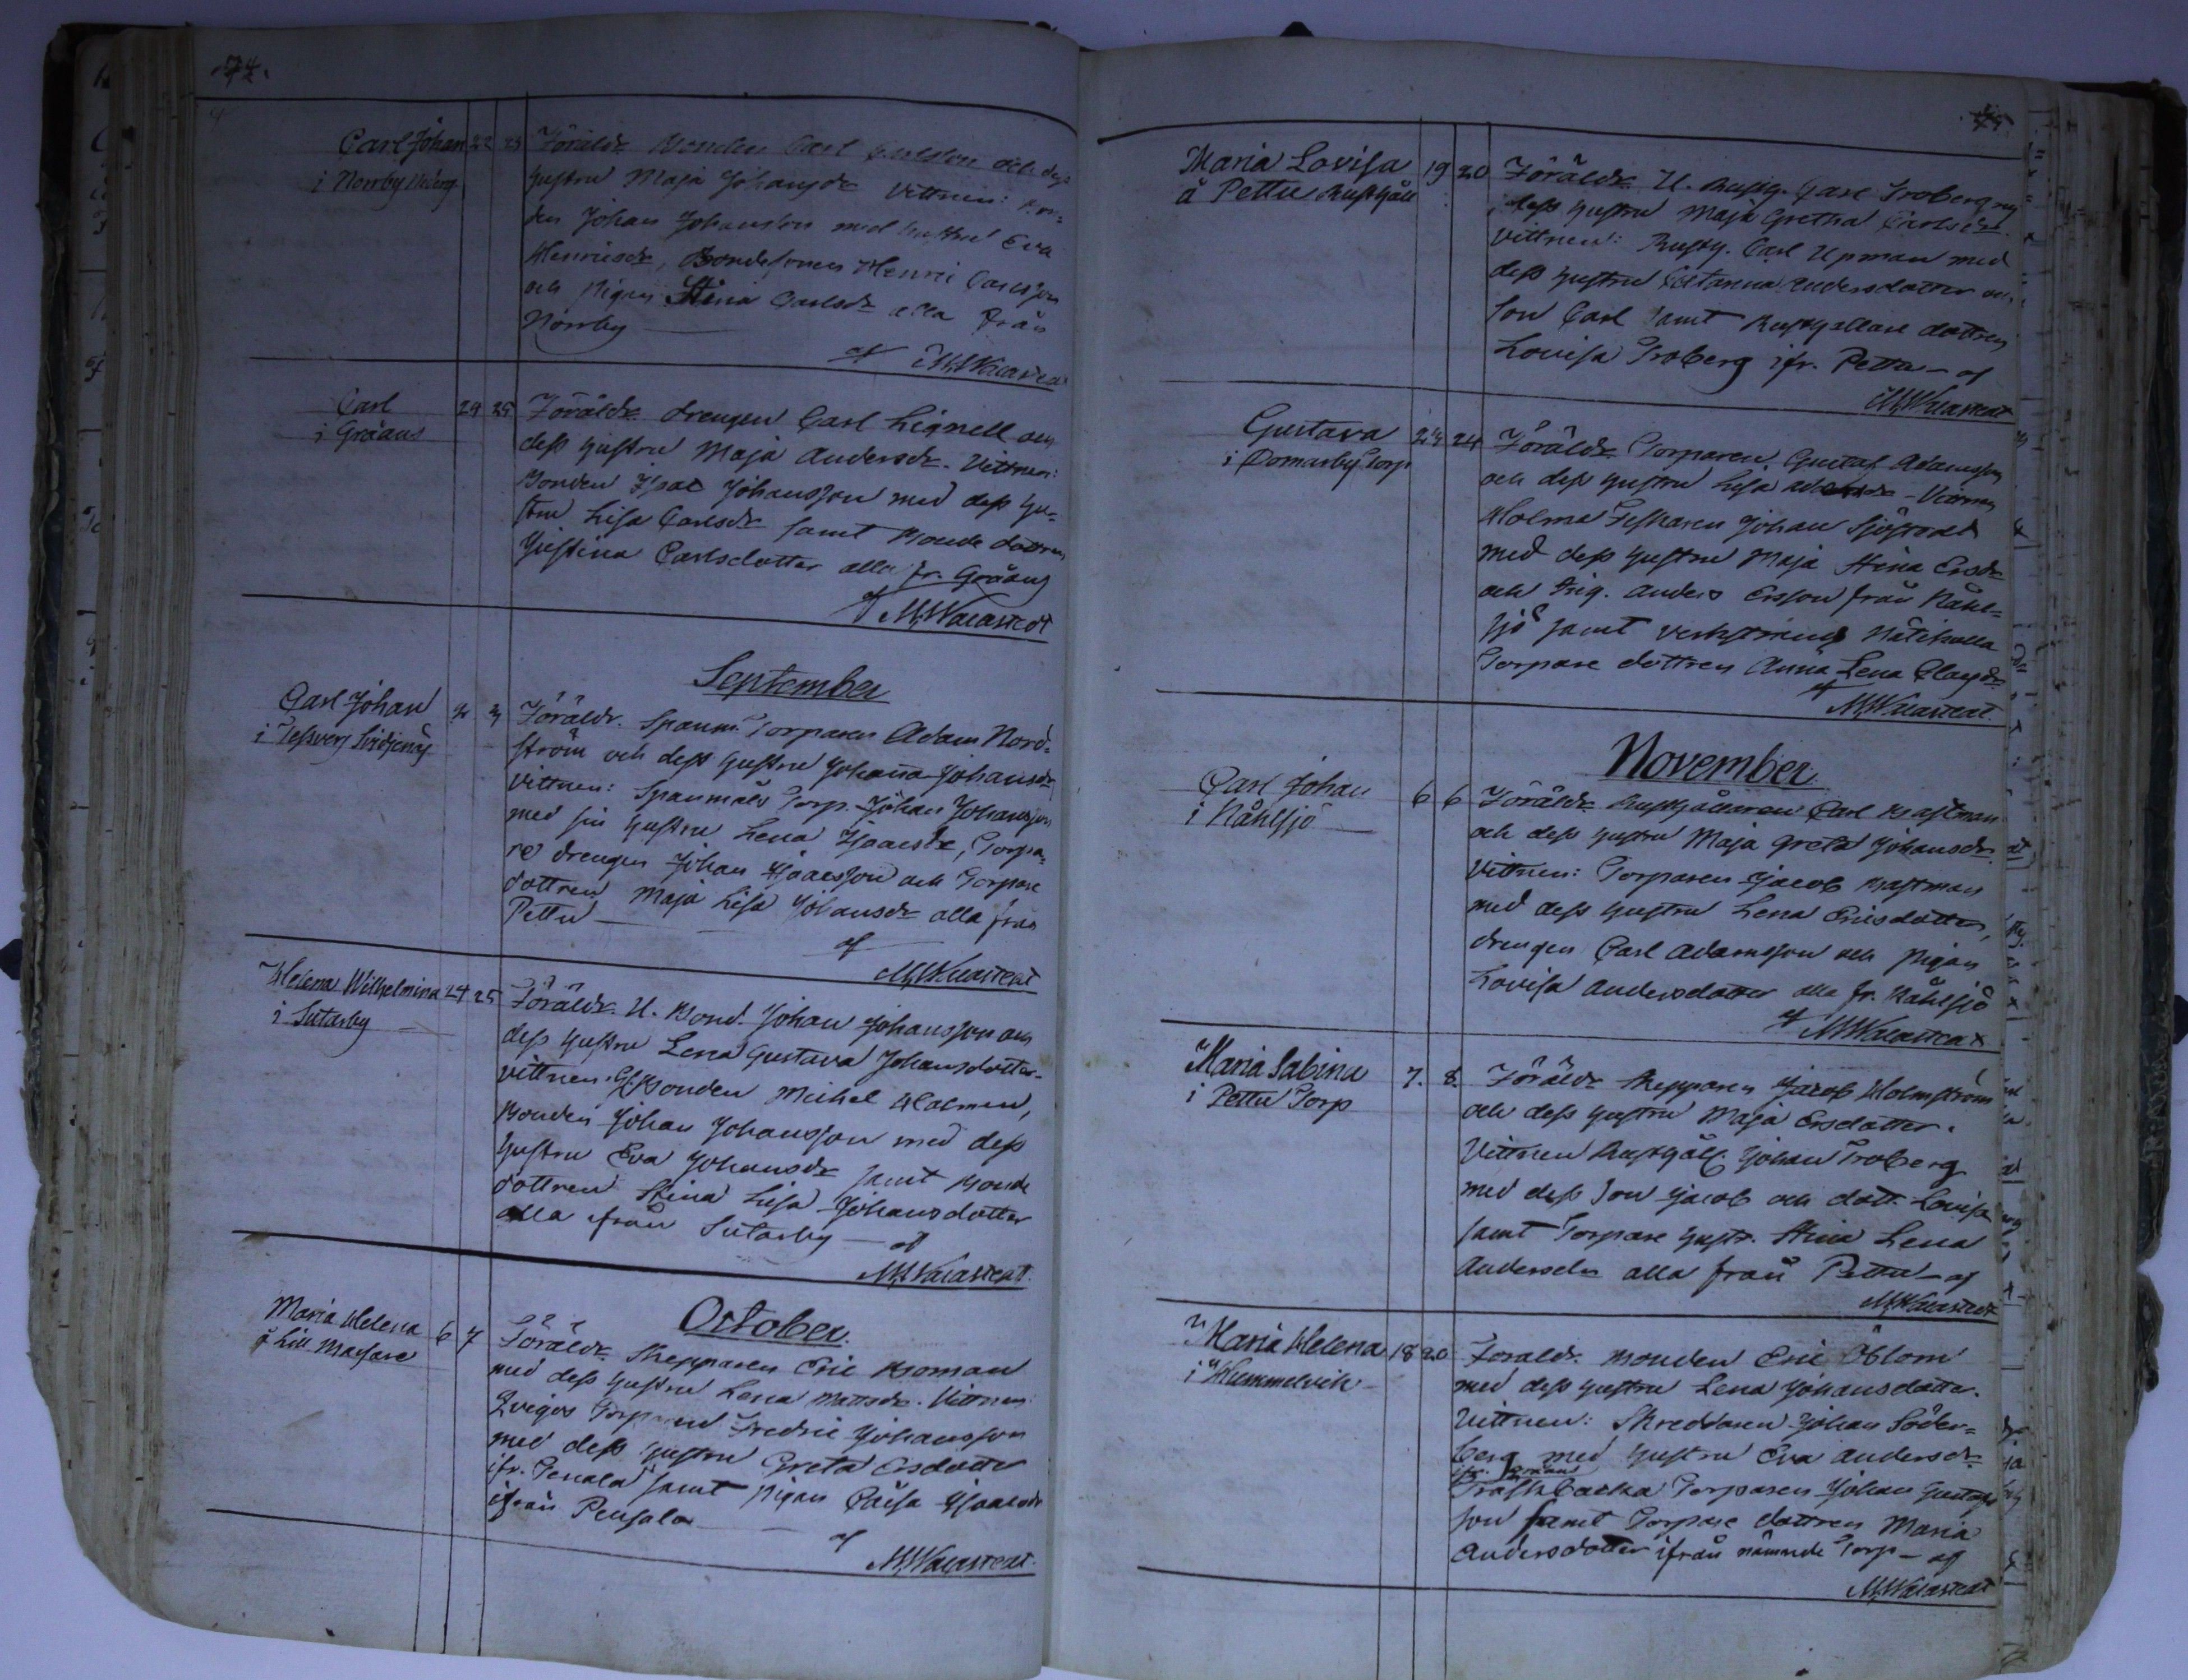 74.
Carl Johan 22 23 Föräldr Bonden Carl Carlsson och dess
i Norrby
hustru Maja Johansdr Vittnen: Bon=
den Johan Johansson med hustru Eva
Henricsdr, Bondesonen Henric Carlsson
och Pigan Stina Carlsdr alla från
Norrby
af M,Walastedt
Carl 24 25 Föräldr drengen Carl Lignell och
i Gräans
dess hustru Maja Andersdr. Vittnen:
Bonden Isac Johansson med dess hu=
stru Lisa Carlsdr samt Bonde dottren
Justina Carlsdotter alla fr. Gräans
af M,Walastedt
September
Carl Johan 2 3 Föräldr. Spanm. Torparen Adam Nord=
ström och dess hustru Johanna Johansdr
Vittnen: Spanmåls Torp. Johan Johansson
med sin hustru Lena Isacsdr, Torpa=
re drengen Johan Isacsson och Torpare
dottren Maja Lisa Johansdr alla från
Pettu
af
M,Walastedt
Helena Wilhelmina 24 25 Föräldr. U. Bond. Johan Johansson och
i Sutarby
dess hustru Lena Gustava Johansdotter
Vittnen: Gl. Bonden Michel Holmen,
Bonden Johan Johansson med dess
hustru Eva Johansdr samt Bonde
dottren Stina Lisa Johansdotter
alla från Sutarby – af
M,Walastedt.
October.
Maria Helena 6 7 Föräldr Skepparen Eric Boman
å Lill
med dess hustru Lena Mattsdr. Vittnen:
Torparen Fredric Johansson
med dess hustru Greta Ersdotter
ifr. Tenala samt pigan Caisa Isacsdr
ifrån Pensala
af
M,Walastedt.
75
Maria Lovisa 19 20 Föräldr U. Rustg. Carl Froberg och
å Pettu Rusthåll
dess hustru Maja Gretha Carlsdr.
Vittnen: Rusth. Carl Upman med
dess hustru Catarina Andersdotter och
son Carl samt Rusthållare dottren
Lovisa Froberg ifr. Pettu – af
M,Walastedt
Gustava 23 24 Föräldr Torparen Gustaf Adamsson
i Domarby Torp
och dess hustru Lisa – Vittnen
Holma Fiskaren Johan Sjöstedt
med dess hustru Maja Stina Ersdr
och Anders Ersson från Kåhl=
sjö samt
Torpare dottren Anna Lena Clasdr.
af
M,Walastedt.
November.
Carl Johan 6 6 Föräldr Rusthållaren Carl Kastman
i Kåhlsjö
och dess hustru Maja Greta Johansdr.
Vittnen: Torparen Jacob Kastman
med dess hustru Lena Ericsdotter,
drengen Carl Adamsson och Pigan
Lovisa Andersdotter alla fr. Kåhlsjö
af M,Walastedt
Maria Sabina 7. 8. Föräldr Skepparen Jacob Holmström
i Pettu Torp
och dess hustru Maja Ersdotter.
Vittnen Rusthåll. Johan Froberg
med dess son Jacob och dott. Lovisa
samt Torpare hustr. Stina Lena
Andersdr alla från Pettu – af
M,Walastedt
Maria Helena 18 20 Föräldr. Bonden Eric Öblom
i Hummelvik
med dess hustru Lena Johansdotter.
Vittnen: Skreddaren Johan Söder=
berg med hustru Eva Andersdr
Träskbacka Torparen Johan Gustafs
son samt Torpare dottren Maria
Andersdotter ifrån nämnde Torp – af
M,Walastedt